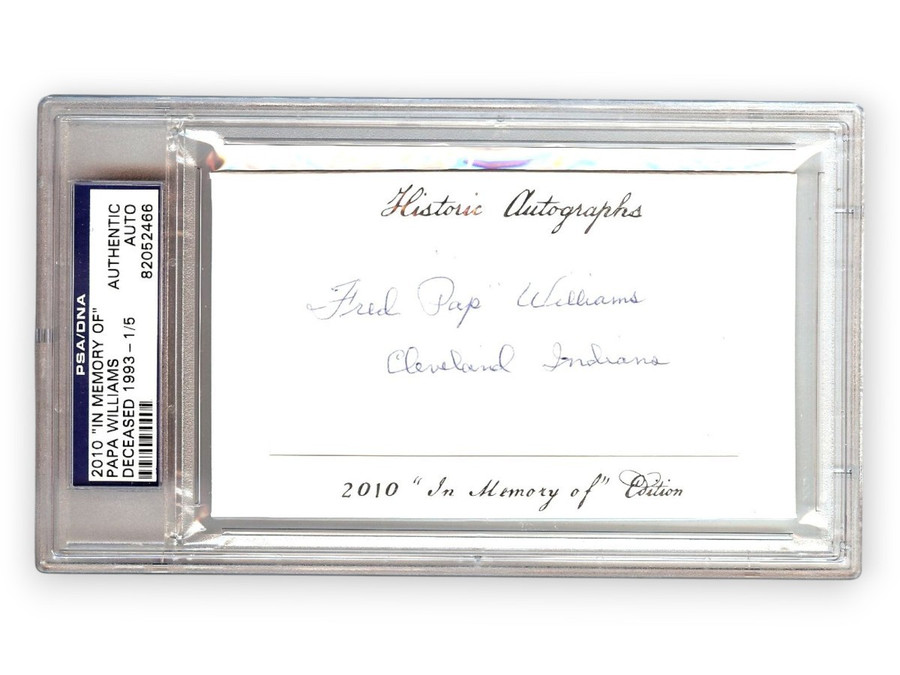 PSA/DNA
2010 "IN MEMORY OF"
PAPA WILLIAMS
DECEASED 1993 - 1/5
AUTHENTIC
AUTO
82052466
Historic Autographs
Fred "Pap" Williams
Cleveland Indians
2010 "In Memory of" Edition